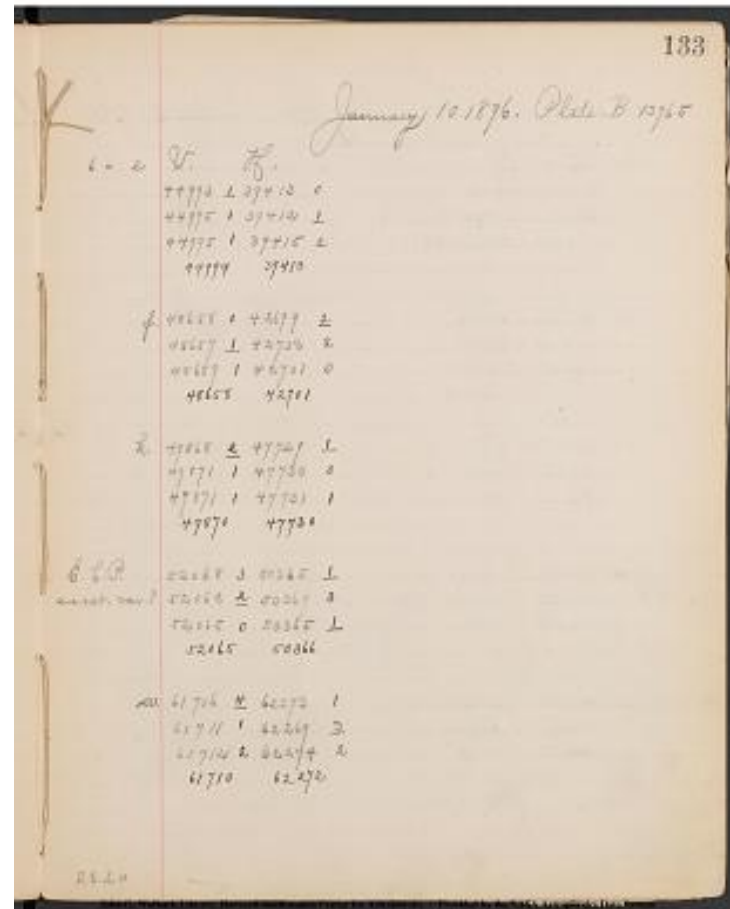 133
January 10 1896. Plate B 13965
44993 1 39413 0
44995 1 39412 1
44995 1 39415 2
44994 39413
f 48658 0 42699 2
48657 1 42703 2
48659 1 42701 0
48658 42701
h 49868 2 47729 1
49871 1 47730 0
49871 1 47731 1
49870 47730
52068 3 50365 1
52063 2 50369 3
52065 0 50365 1
52065 50366
61706 4 62273 1
61711 1 62269 3
61712 2 62274 2
61710 62272